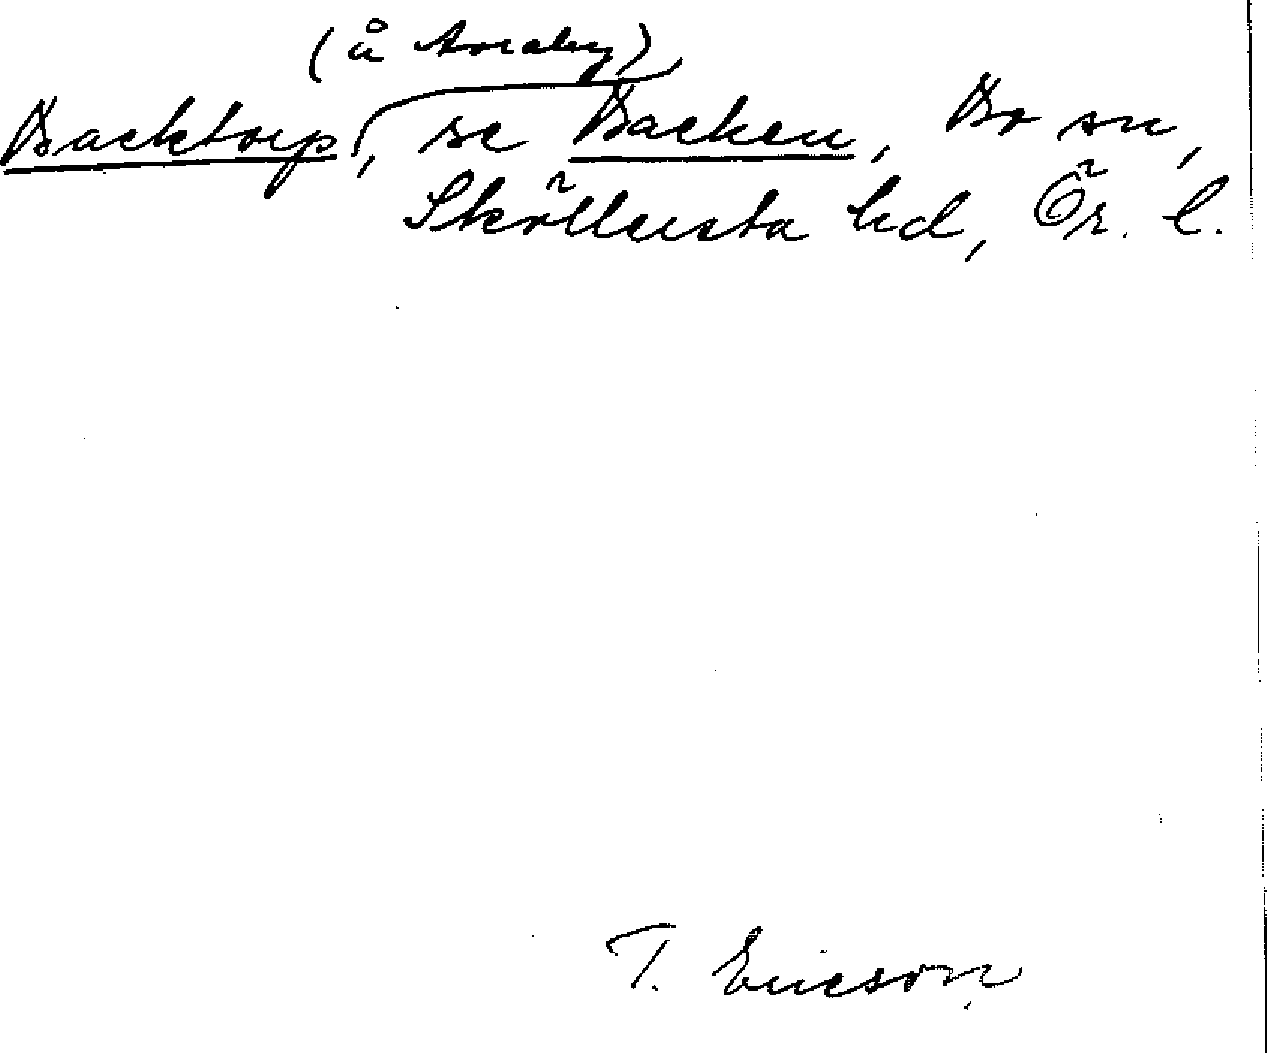 (å
Backtorp, se Backen, Bo sn,
Sköllersta hd, Ör. l.
T. Ericson